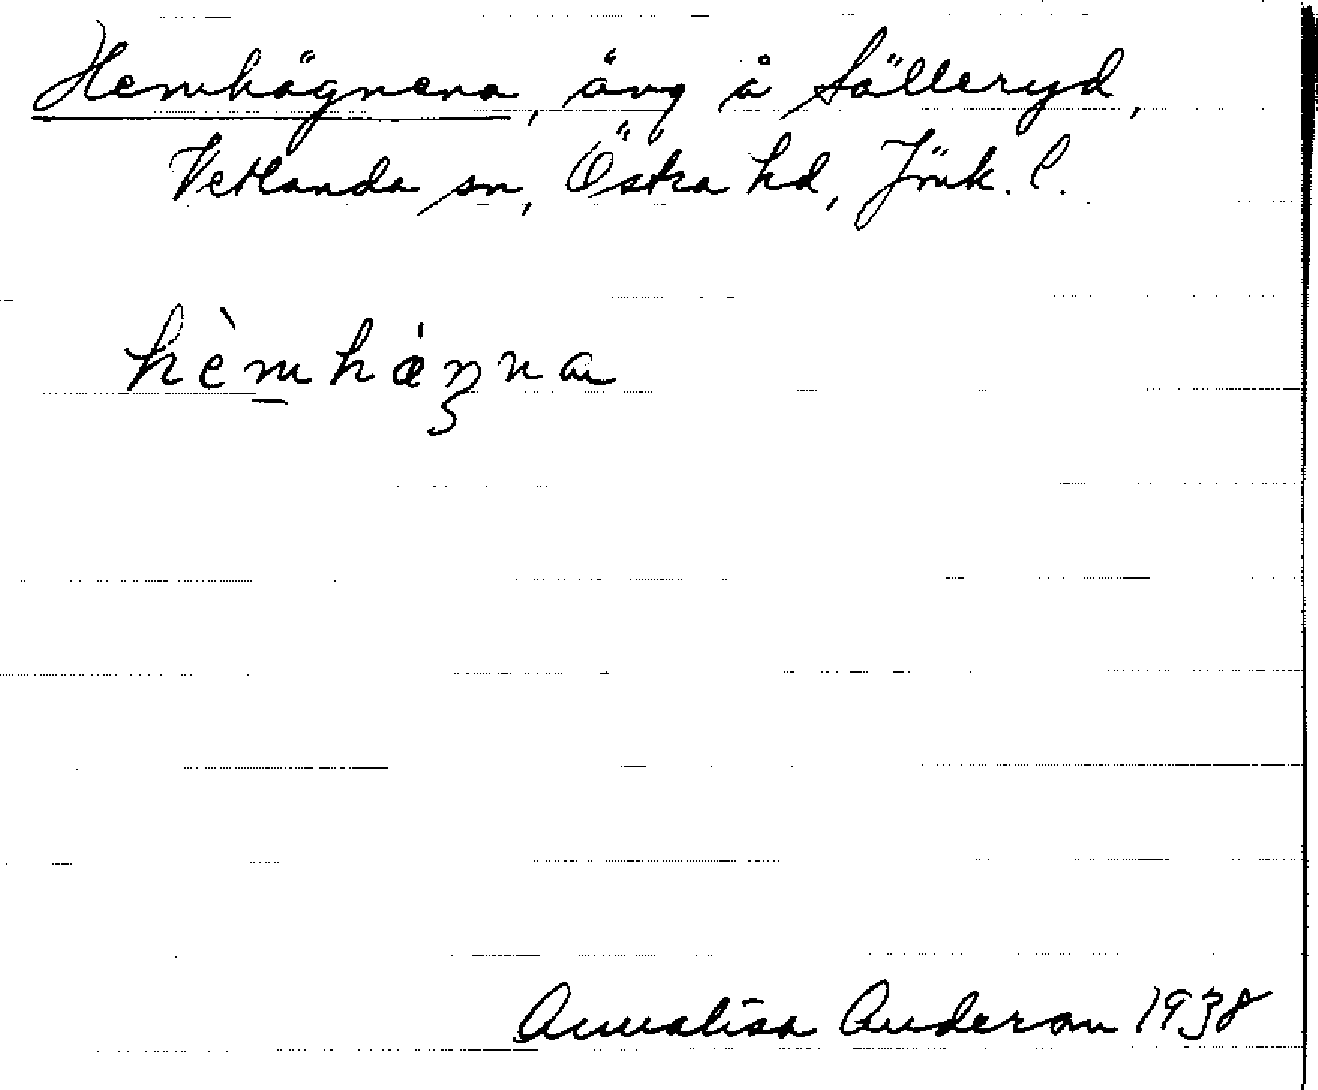 Hemhägnena, äng å Sälleryd,
Vetlanda sn, Östra hd, Jönk. l.
hèmháŋna
Annalisa Anderson 1938